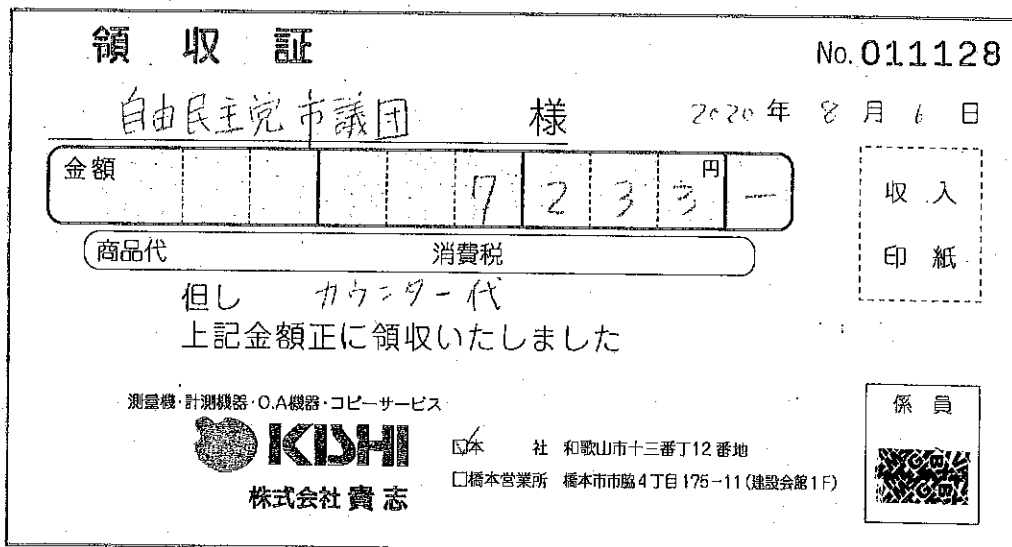 領収証
No. 011128
自由民主党市議団 様
2020年 8月 6日
金額 7233円 —
収入
印紙
商品代 消費税
但し カウンター代
上記金額正に領収いたしました
測量機・計測機器・O.A機器・コピーサービス
KISHI
株式会社 貴志
係員
本社 和歌山市十三番丁12番地
橋本営業所 橋本市市脇4丁目175-11(建設会館1F)